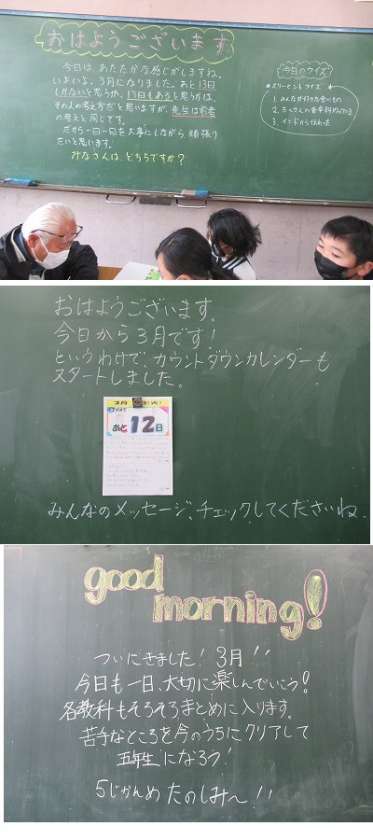 おはようございます
今日は、あたたかな感じがしますね。
いよいよ、3月になりました。あと13日
しかないと思うか、13日もあると思うかは、
その人の考え方だと思いますが、先生は前者
の考えと同じです。
だから一日一日を大事にしながら、頑張り
たいと思います。
みなさんは、どちらですか？
今日のクイズ
スリーヒントクイズ
1.みんなが好きな食べもの
2.
3.インドから
おはようございます。
今日から3月です！
というわけで、カウントダウンカレンダーも
スタートしました。
あと12日
みんなのメッセージ、チェックしてくださいね。
good
morning!
ついにきました！3月！！
今日も一日、大切に楽しんでいこう！
各教科もそろそろまとめに入ります。
苦手なところを今のうちにクリアして
五年生になろう！
5じかんめたのしみ〜！！